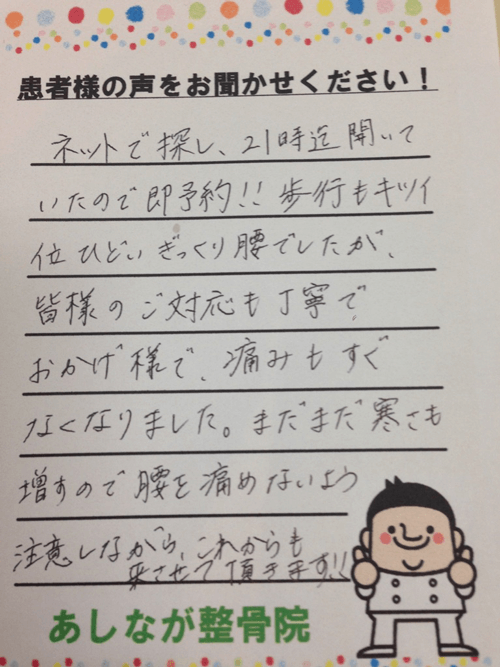 患者様の声をお聞かせください！
ネットで探し、21時迄開いて
いたので即予約!! 歩行もキツイ
位ひどいぎっくり腰でしたが、
皆様のご対応も丁寧で、
おかげ様で、痛みもすぐ
なくなりました。まだまだ寒さも
増すので腰を痛めないよう
注意しながら、これからも
来させて頂きます!!
あしなが整骨院